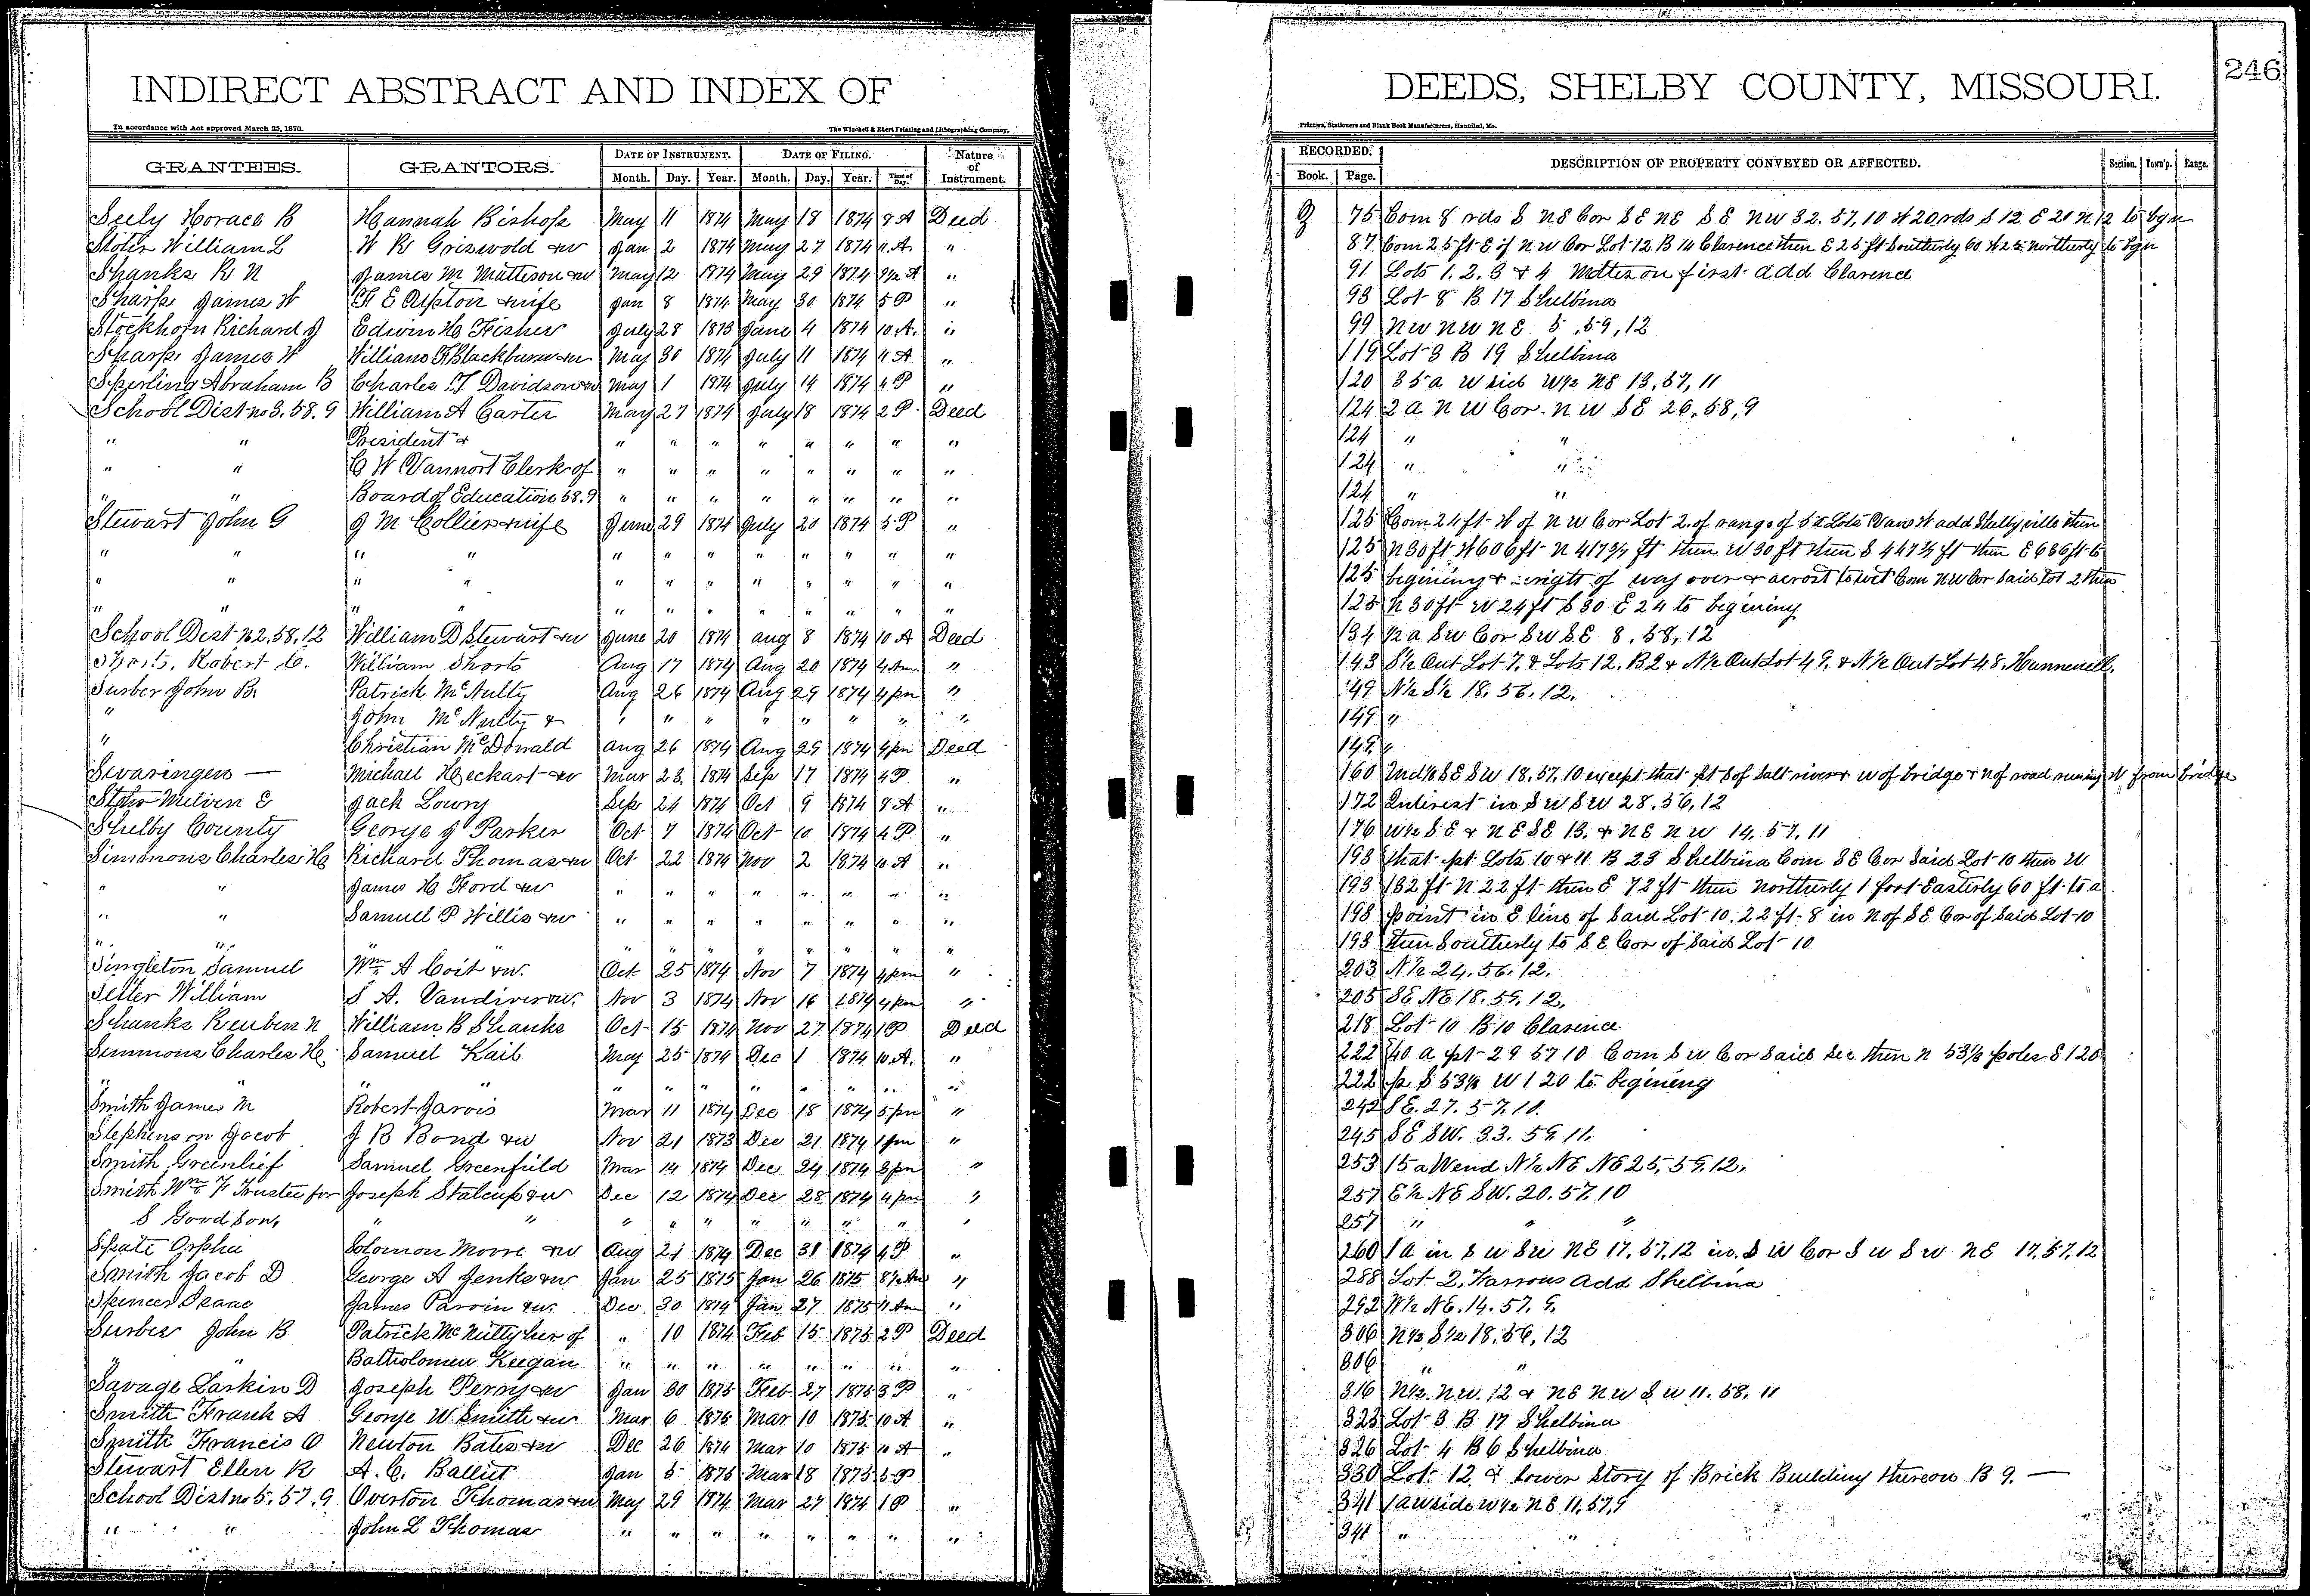 INDIRECT ABSTRACT AND INDEX OF DEEDS, SHELBY COUNTY, MISSOURI. 246
In accordance with Act approved March 25, 1870. The Winchell & Ebert Printing and Lithographing Company, Printers, Stationers and Blank Book Manufacturers, Hannibal, Mo.
GRANTEES. GRANTORS. DATE OF INSTRUMENT. DATE OF FILING. Nature of Instrument. RECORDED. DESCRIPTION OF PROPERTY CONVEYED OR AFFECTED. Section. Town'p. Range.
Month. Day. Year. Month. Day. Year. Time of Day. Book. Page.
Seely Horace B Hannah Bishop May 11 1874 May 18 1874 8 A Deed 75 Com 8 rds S NE Cor SE NE SE NW 32. 57, 10 W 20 rds S 12 E 20 N 12 to bgn
William L W R Griswold & w Jan 2 1874 May 27 1874 11 A " 87 Com 25 ft E of NW Cor Lot 12 B 14 Clarence then E 25 ft Southerly 60 W 25 Northerly to bgn
Shanks R N James M Matteson & w May 12 1874 May 29 1874 A " 91 Lots 1. 2. 3 & 4 Matteson first add Clarence
Sharp James W F E Upton & wife Jan 8 1874 May 30 1874 5 P " 93 Lot 8 B 17 Shelbina
Stockhorn Richard J Edwin H Fisher July 28 1873 June 4 1874 10 A. " 99 NW NW NE 5, 59, 12
Sharp James W William F Blackburn & w May 30 1874 July 11 1874 11 A " 119 Lot 3 B 19 Shelbina
Sperling Abraham B Charles T Davidson & w May 1 1874 July 14 1874 4 P " 120 35 a W side W ½ NE 13, 57, 11
School Dist no 3. 58. 9 William A Carter May 27 1874 July 18 1874 2 P Deed 124 2 a NW Cor. NW SE 26, 58, 9
" " President & " " " " " " " " 124 " "
" " C W Vannort Clerk of " " " " " " " " 124 " "
" " Board of Education 58. 9 " " " " " " " " 124 " "
Stewart John G J M Collier & wife June 29 1874 July 20 1874 5 P " 125 Com 24 ft W of NW Cor Lot 2 of range of 5 a Lots add Shelbyville then
" " " " " " " " " " " " 125 N 30 ft W 606 ft N 417¾ ft then W 30 ft then S 447¾ ft then E 636 ft to
" " " " " " " " " " " " 125 begining & right of way over & acrost to wit Com NW Cor said Lot 2 then
" " " " " " " " " " " " 125 N 30 ft W 24 ft S 30 E 24 to begining
School Dist no 2, 58, 12 William D Stewart & w June 20 1874 Aug 8 1874 10 A Deed 134 ½ a SW Cor SW SE 8, 58, 12
Shorts, Robert C. William Shorts Aug 17 1874 Aug 20 1874 9 Am " 143 S½ Out Lot 7. & Lots 12. B 2 & N½ Out Lot 49. & N½ Out Lot 48. Hunnewell.
Surber John B. Patrick McNulty Aug 26 1874 Aug 29 1874 4 pm " 149 N½ S½ 18. 56. 12.
" John McNulty & " " " " " " " " 149 "
" Christian McDonald Aug 26 1874 Aug 29 1874 4 pm Deed 149 "
Swaringen — Michael Heckart & w Mar 23 1874 Sep 17 1874 4 P " 160 Und ½ SE SW 18. 57, 10 except that pt S of Salt river & W of bridge & N of road runing W from bridge
Melvin E Jack Lowry Sep 24 1874 Oct 9 1874 8 A " 172 Interest in SW SW 28, 56, 12
Shelby County George J Parker Oct 7 1874 Oct 10 1874 4 P " 176 W½ SE & NE SE 13. & NE NW 14, 57, 11
Simmons Charles H Richard Thomas & w Oct 22 1874 Nov 2 1874 11 A " 193 that pt Lots 10 & 11 B 23 Shelbina Com SE Cor said Lot 10 then W
" " James H Ford & w " " " " " " " " 193 132 ft N 22 ft then E 72 ft then northerly 1 foot Easterly 60 ft to a
" " Samuel P Willis & w " " " " " " " " 193 point in E line of said Lot 10. 22 ft 8 in N of SE Cor of said Lot 10
" " " " " " " " " " " 193 then Southerly to SE Cor of said Lot 10
Singleton Samuel Wm A Coit & w. Oct 25 1874 Nov 7 1874 4 pm " 203 N½ 24. 56. 12.
William S A. Vandiver & w. Nov 3 1874 Nov 16 1874 4 pm " 205 SE NE 18. 59. 12.
Shanks Reuben N William B Shanks Oct 15 1874 Nov 27 1874 1 P Deed 218 Lot 10 B 10 Clarence
Simmons Charles H Samuel Kail May 25 1874 Dec 1 1874 10 A. " 222 40 a pt 29 57 10 Com SW Cor said Sec then N 53⅓ poles E 120
" " " " " " " " " " " " 222 p S 53⅓ W 120 to begining
Smith James M Robert Jarvis Mar 11 1874 Dec 18 1874 5 pm " 242 SE. 27. 57. 10.
Stephenson Jacob J B Bond & w Nov 21 1873 Dec 21 1874 1 pm " 245 SE SW. 33. 59. 11.
Smith Greenlief Samuel Greenfield Mar 14 1874 Dec 24 1874 3 pm " 253 15 a W end N½ NE NE 25, 59. 12.
Smith Wm F Trustee for Joseph Stalcup & w Dec 12 1874 Dec 28 1874 4 pm " 257 E½ NE SW. 20. 57. 10
S Goodson, " " " " " " " " " " 257 " " "
Spate Orpha Solomon Moore & w Aug 24 1874 Dec 31 1874 4 P " 260 1 a in SW SW NE 17, 57, 12 in SW Cor SW SW NE 17. 57. 12
Smith Jacob D George A Jenks & w Jan 25 1875 Jan 26 1875 8½ Am " 288 Lot 2. Farrows add Shelbina
Spencer Isaac James Parvin & w. Dec 30 1874 Jan 27 1875 11 Am " 292 W½ NE. 14. 57. 9.
Surber John B Patrick McNulty her of " 10 1874 Feb 15 1875 2 P Deed 306 N½ S½ 18, 56, 12
" " Batholomew Keegan " " " " " " " " 306 " "
Savage Larkin D Joseph Perry & w Jan 30 1875 Feb 27 1875 3 P " 316 N½. NW. 12 & NE NW SW 11. 58. 11
Smith Frank A George W Smith & w Mar 6 1875 Mar 10 1875 10 A " 323 Lot 3 B 17 Shelbina
Smith Francis O Newton Bates & w Dec 26 1874 Mar 10 1875 10 A " 326 Lot 4 B 6 Shelbina
Stewart Ellen R A. C. Balliet Jan 5 1875 Mar 18 1875 5 P " 330 Lot 12 & lower Story of Brick Building thereon B 9. —
School Dist no 5. 57. 9 Overton Thomas & w May 29 1874 Mar 27 1874 1 P " 341 1 a W side W½ NE 11, 57, 9
" " John L Thomas " " " " " " " " 341 " "